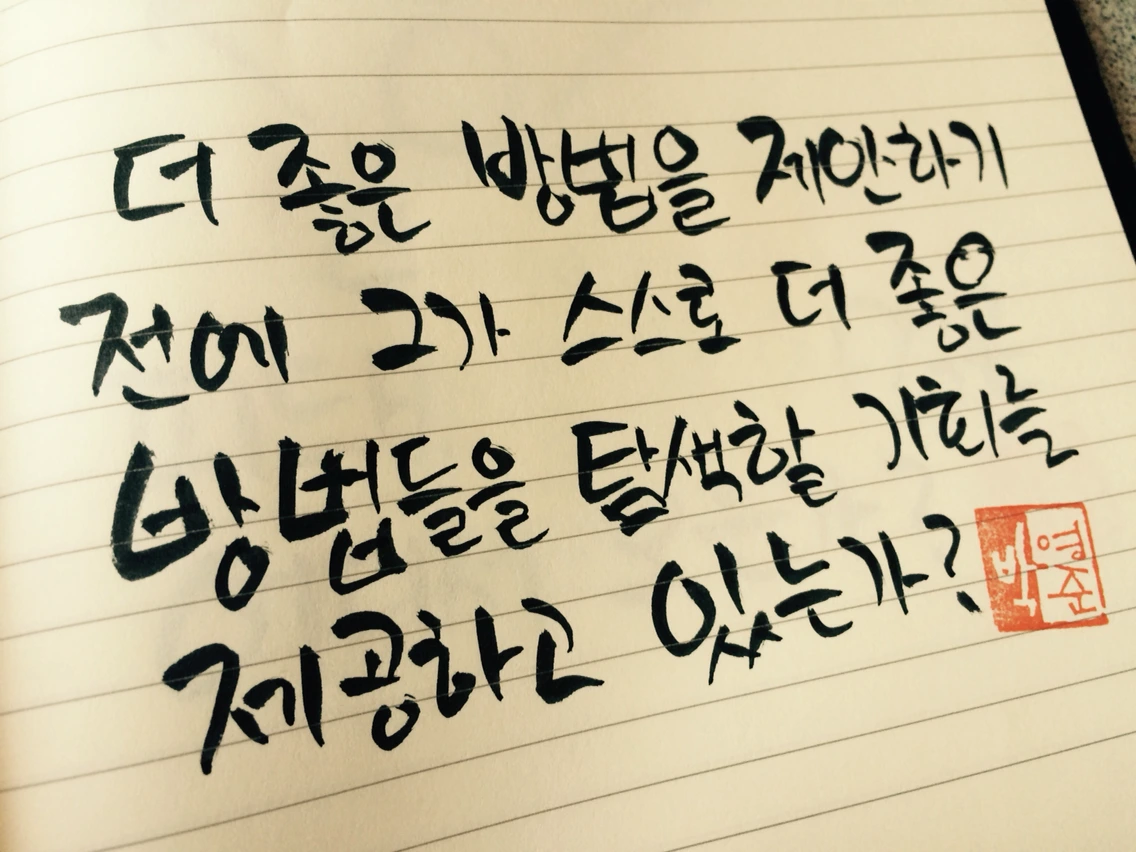 더 좋은 방법을 제안하기
전에 그가 스스로 더 좋은
방법들을 탐색할 기회를
제공하고 있는가?